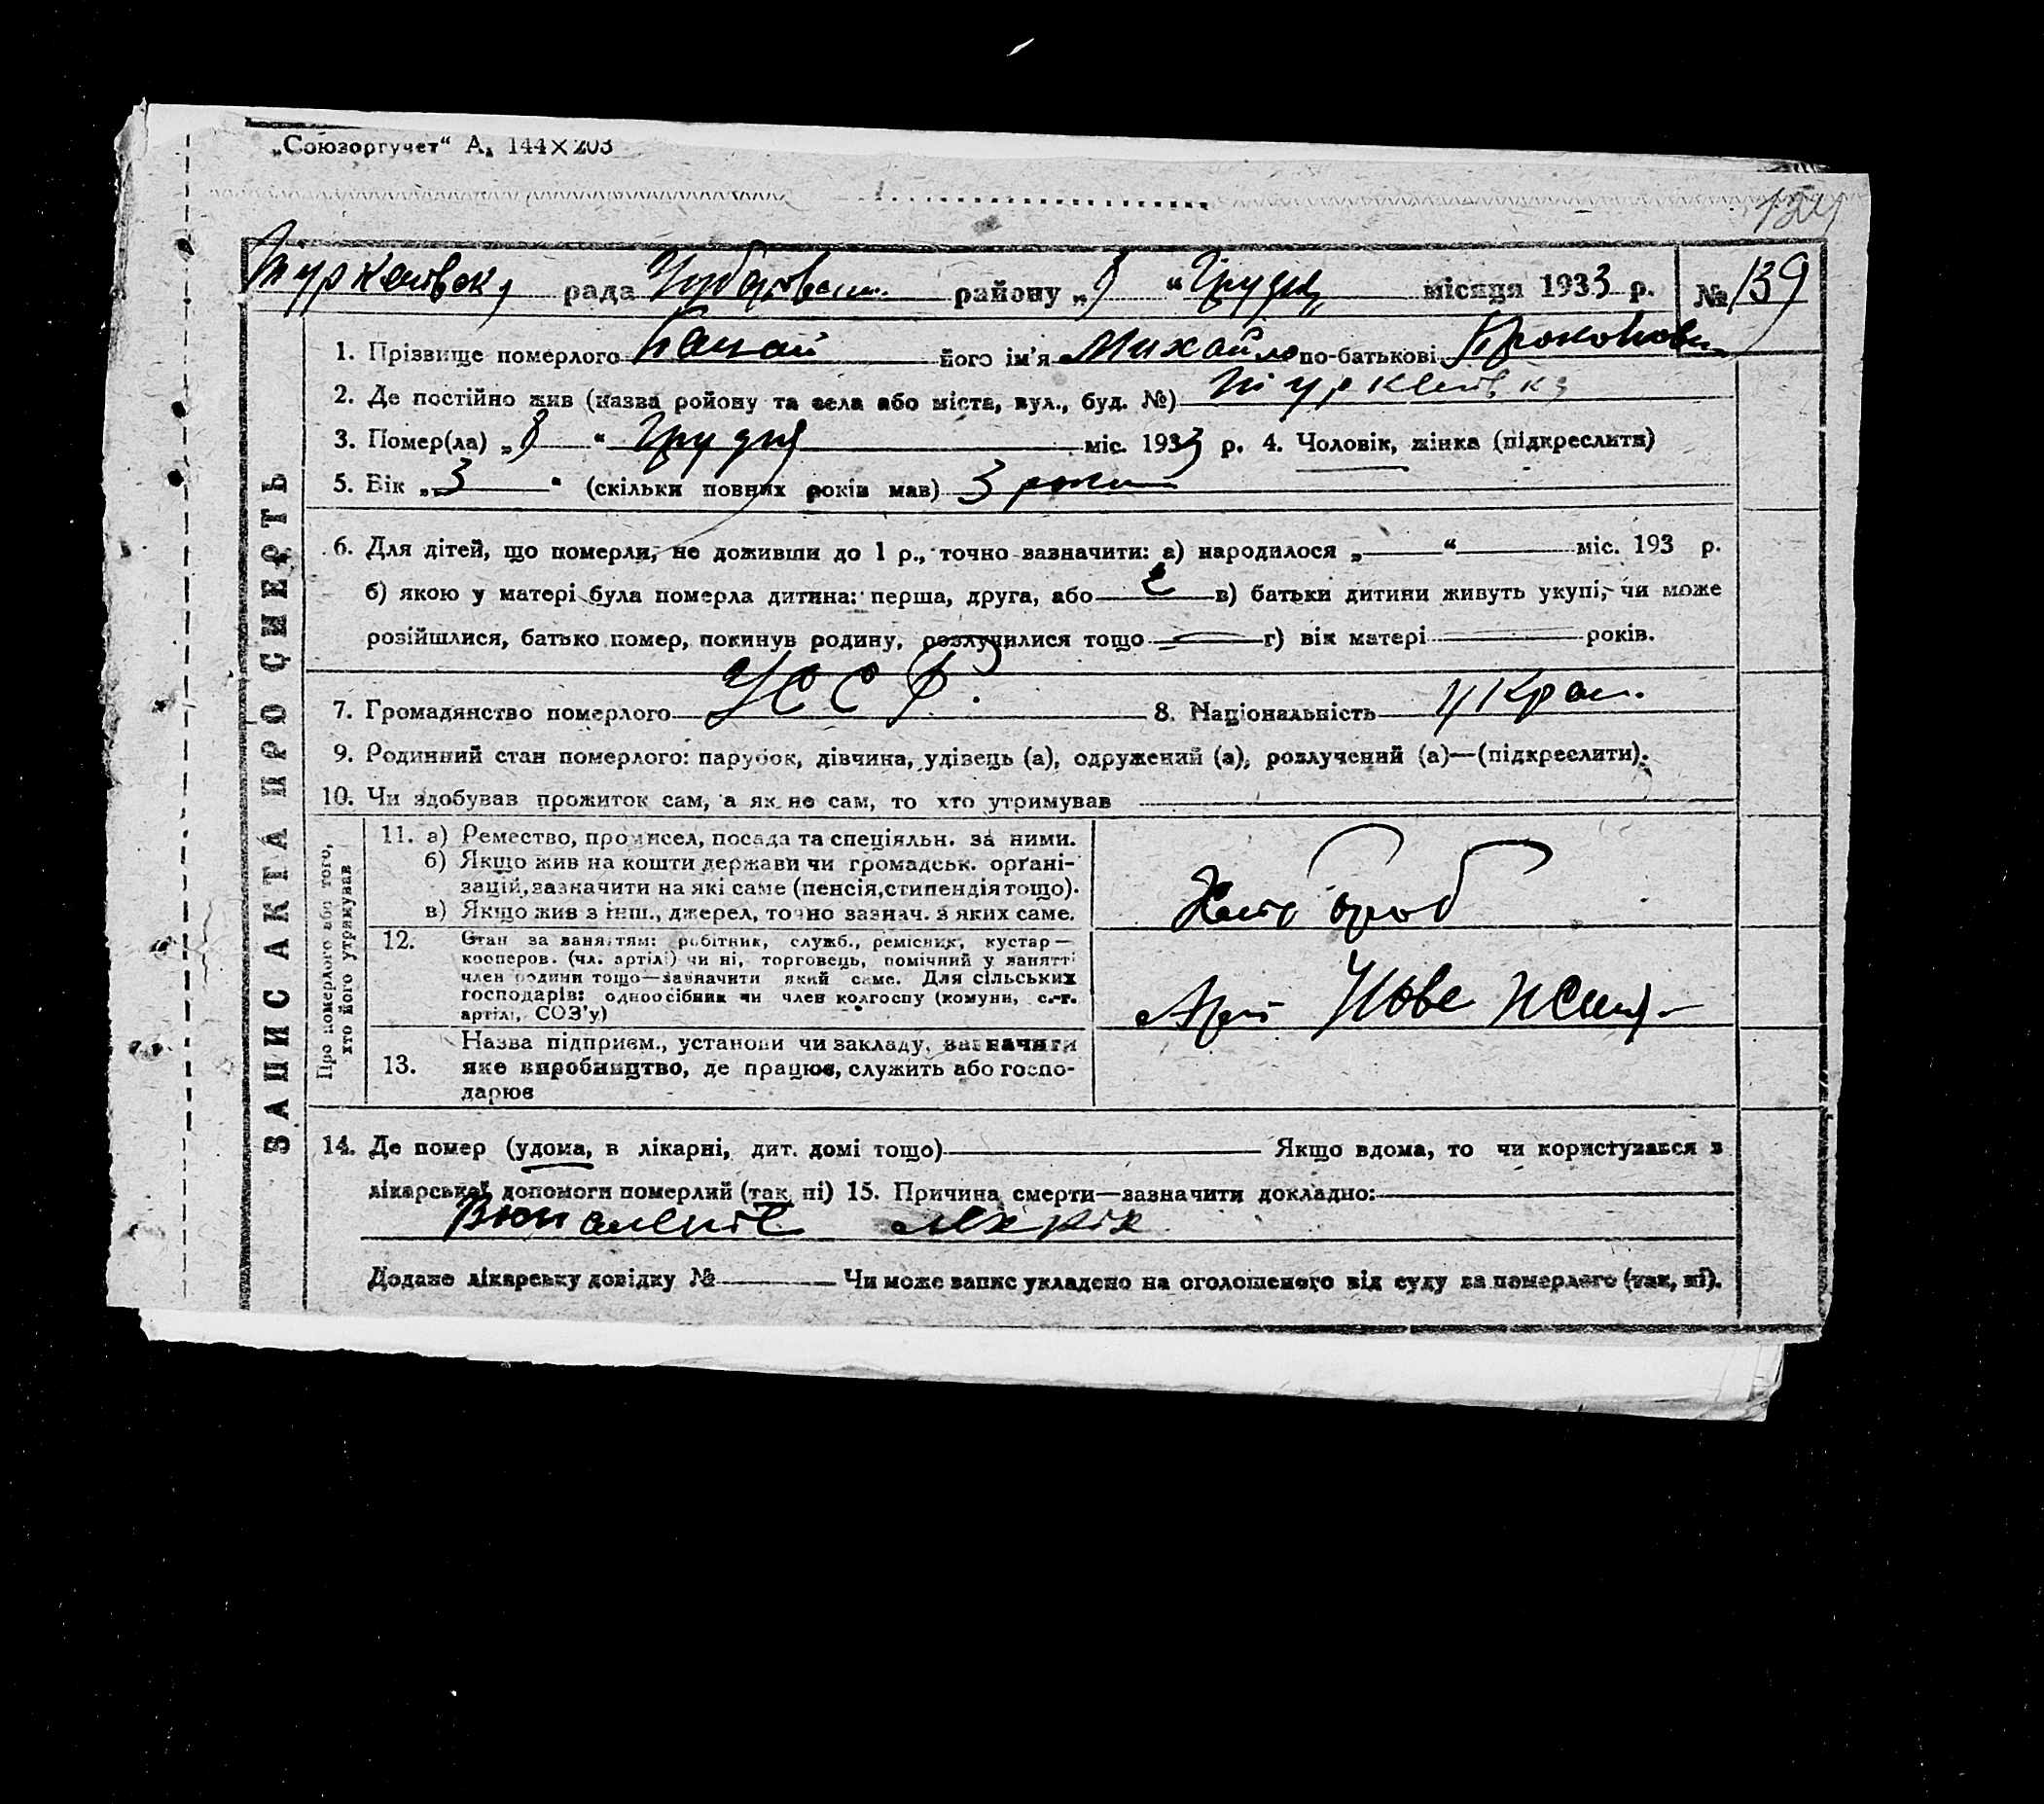 „Союзоргучет“ А. 144×203
рада району „8“ Грудня місяця 1933 р. № 139
ЗАПИС АКТА ПРО СМЕРТЬ
1. Прізвище померлого його ім'я Михайло по-батькові
2. Де постійно жив (назва ройону та села або міста, вул., буд. №)
3. Помер(ла) „8“ Грудня міс. 1933 р. 4. Чоловік, жінка (підкреслити)
5. Вік „3“ (скільки повних років мав) 3 роки
6. Для дітей, що померли, не доживши до 1 р., точно зазначити: а) народилося „ “ міс. 193 р.
б) якою у матері була померла дитина: перша, друга, або в) батьки дитини живуть укупі, чи може
розійшлися, батько помер, покинув родину, розлучилися тощо г) вік матері років.
7. Громадянство померлого УССР. 8. Національність Украї.
9. Родинний стан померлого: парубок, дівчина, удівець (а), одружений (а), розлучений (а)—(підкреслити).
10. Чи здобував прожиток сам, а як не сам, то хто утримував
Про померлого або того,
хто його утримував
11. а) Ремество, промисел, посада та спеціяльн. за ними.
б) Якщо жив на кошти держави чи громадськ. органі-
зацій, зазначити на які саме (пенсія, стипендія тощо).
в) Якщо жив з інш., джерел, точно зазнач. з яких саме.
12. Стан за заняттям: робітник, служб., ремісник, кустар—
кооперов. (чл. артілі) чи ні, торговець, помічний у занятті
член родини тощо—зазначити який саме. Для сільських
господарів: одноосібник чи член колгоспу (комуни, с.-г.
артілі, СОЗ'у)
Нове
13. Назва підприєм., установи чи закладу, зазначити
яке виробництво, де працює, служить або госпо-
дарює
14. Де помер (удома, в лікарні, дит. домі тощо) Якщо вдома, то чи користувався з
лікарської допомоги померлий (так, ні) 15. Причина смерти—зазначити докладно:
Додано лікарську довідку № Чи може запис укладено на оголошеного від суду за померлого (так, ні).